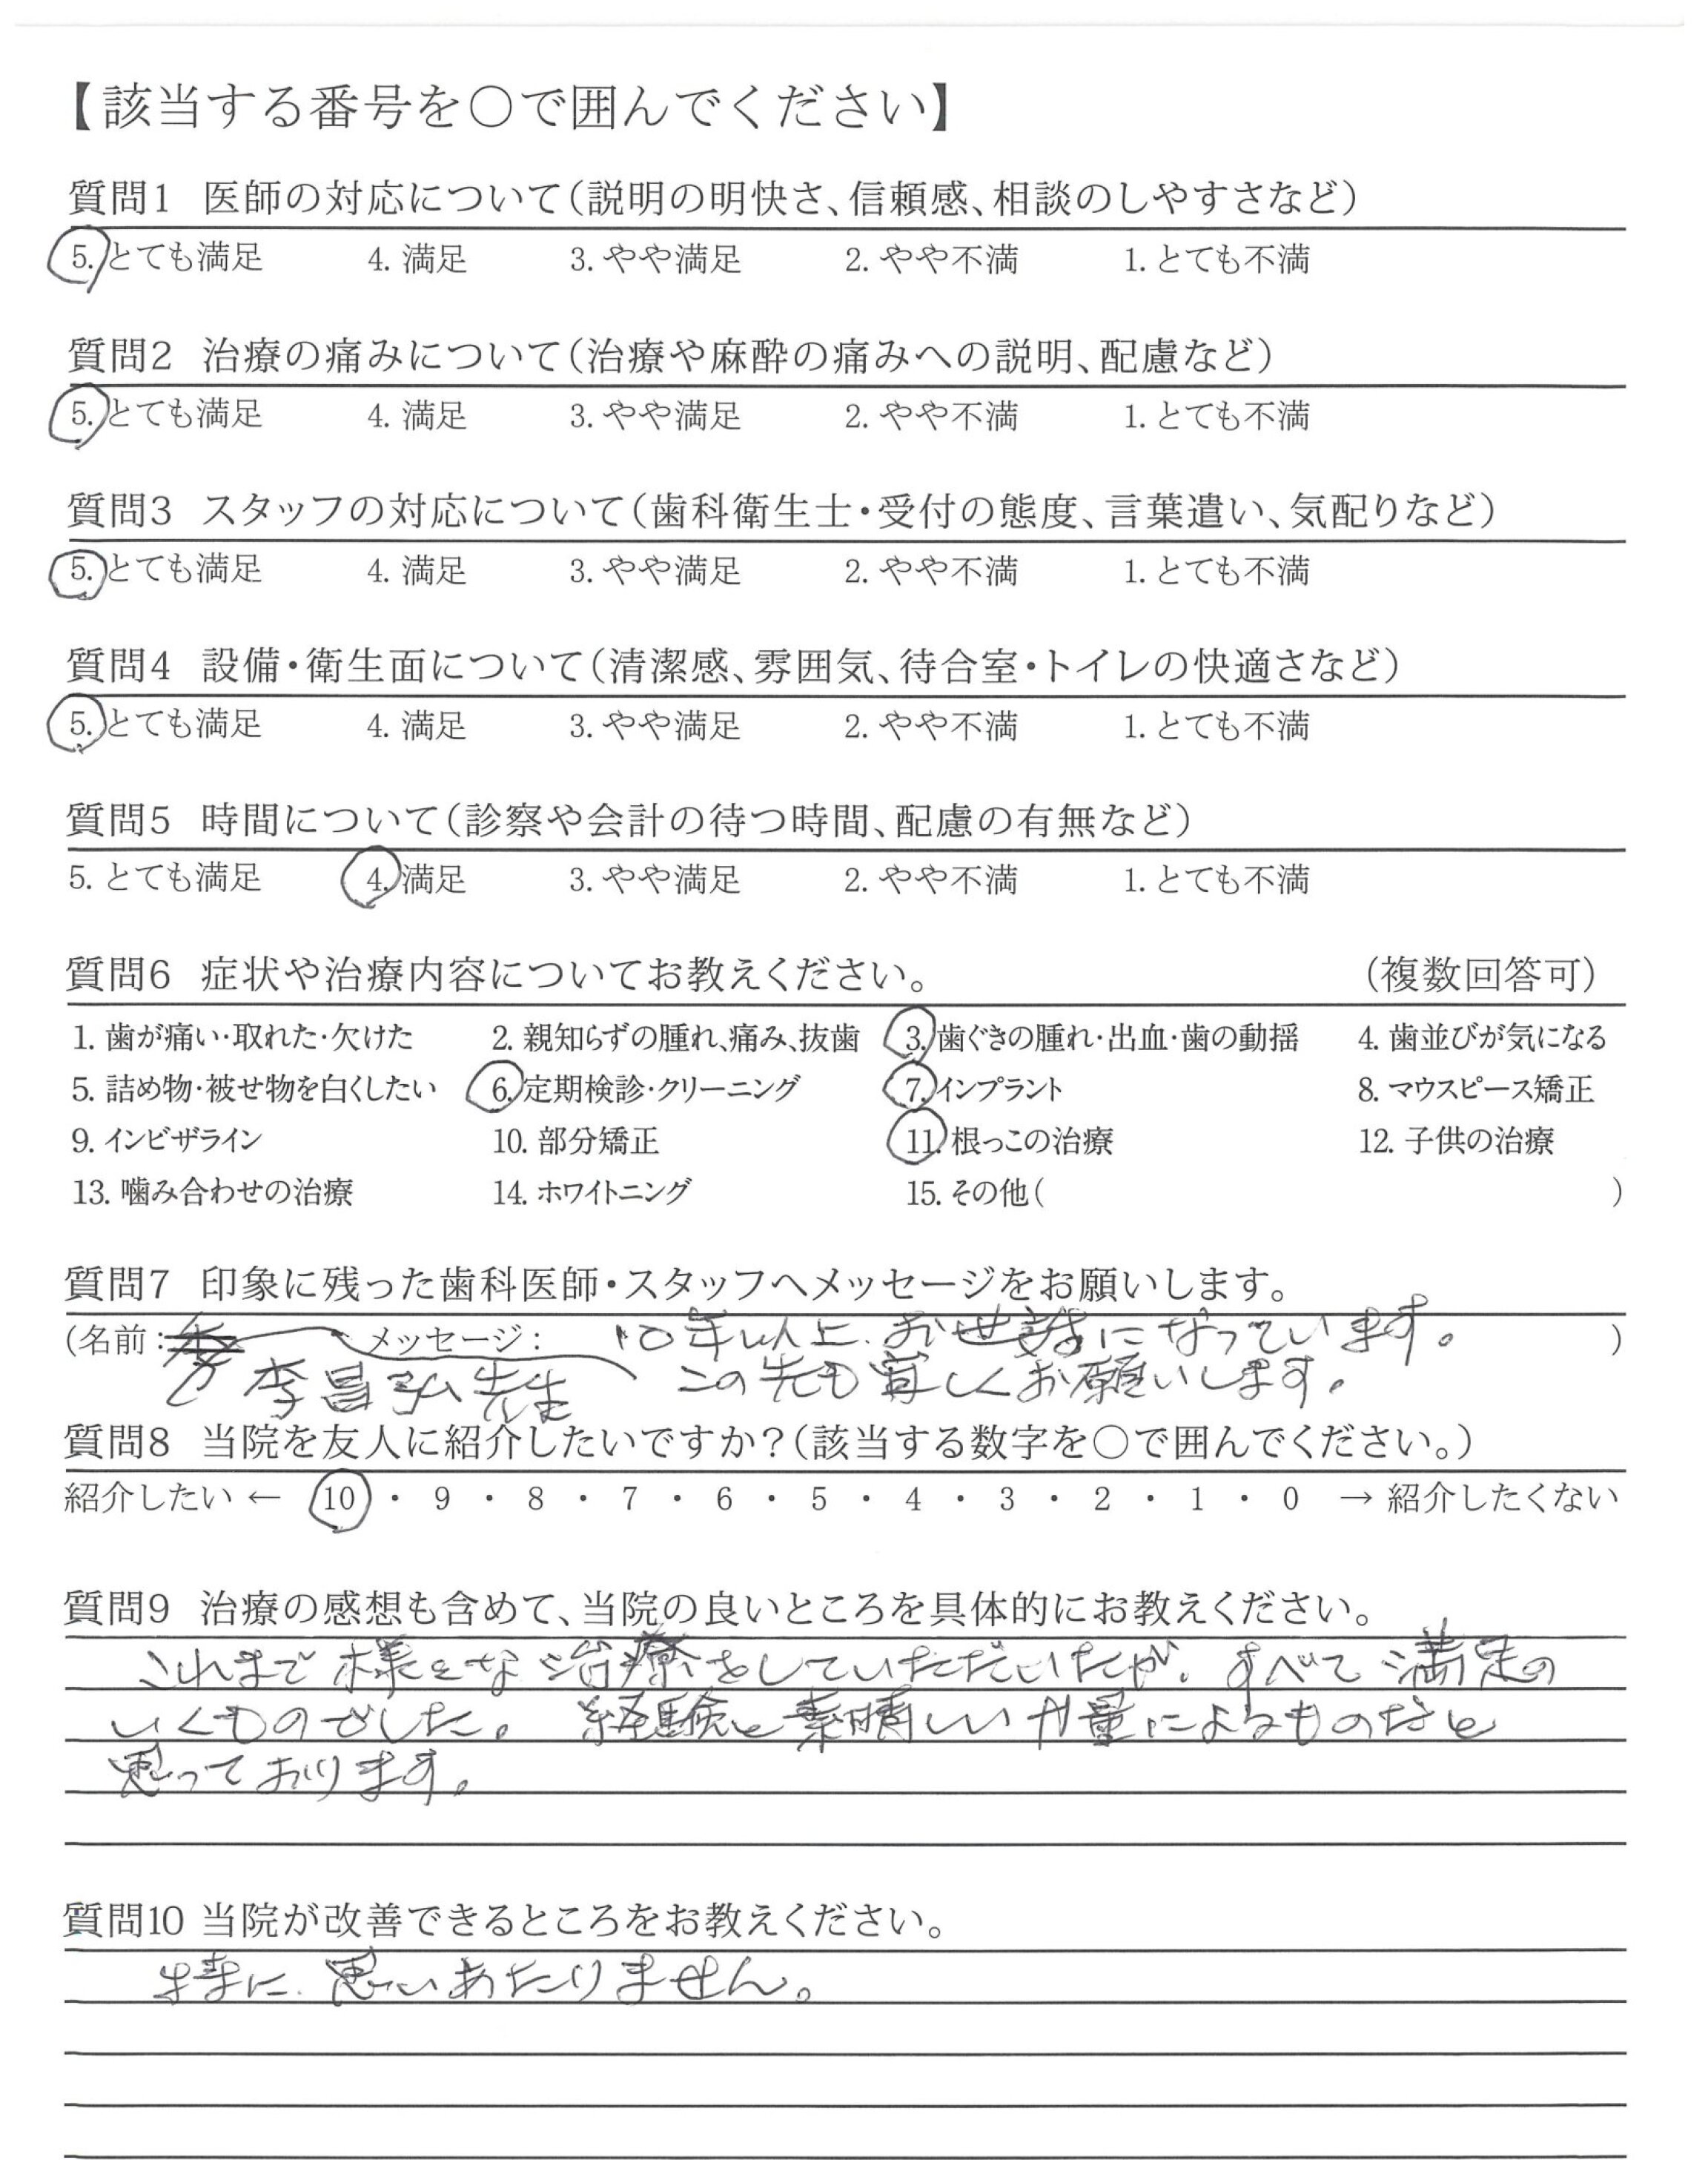 【該当する番号を○で囲んでください】
質問1 医師の対応について(説明の明快さ、信頼感、相談のしやすさなど)
5. とても満足 4. 満足 3. やや満足 2. やや不満 1. とても不満
質問2 治療の痛みについて(治療や麻酔の痛みへの説明、配慮など)
5. とても満足 4. 満足 3. やや満足 2. やや不満 1. とても不満
質問3 スタッフの対応について(歯科衛生士・受付の態度、言葉遣い、気配りなど)
5. とても満足 4. 満足 3. やや満足 2. やや不満 1. とても不満
質問4 設備・衛生面について(清潔感、雰囲気、待合室・トイレの快適さなど)
5. とても満足 4. 満足 3. やや満足 2. やや不満 1. とても不満
質問5 時間について(診察や会計の待つ時間、配慮の有無など)
5. とても満足 4. 満足 3. やや満足 2. やや不満 1. とても不満
質問6 症状や治療内容についてお教えください。 (複数回答可)
1. 歯が痛い・取れた・欠けた 2. 親知らずの腫れ、痛み、抜歯 3. 歯ぐきの腫れ・出血・歯の動揺 4. 歯並びが気になる
5. 詰め物・被せ物を白くしたい 6. 定期検診・クリーニング 7. インプラント 8. マウスピース矯正
9. インビザライン 10. 部分矯正 11. 根っこの治療 12. 子供の治療
13. 噛み合わせの治療 14. ホワイトニング 15. その他( )
質問7 印象に残った歯科医師・スタッフへメッセージをお願いします。
(名前: メッセージ: 10年以上、お世話になっています。 )
李昌弘先生 この先も宜しくお願いします。
質問8 当院を友人に紹介したいですか?(該当する数字を○で囲んでください。)
紹介したい ← 10 ・ 9 ・ 8 ・ 7 ・ 6 ・ 5 ・ 4 ・ 3 ・ 2 ・ 1 ・ 0 → 紹介したくない
質問9 治療の感想も含めて、当院の良いところを具体的にお教えください。
これまで様々な治療をしていただいたが、すべて満足の
いくものでした。経験と素晴しい力量によるものだと
思っております。
質問10 当院が改善できるところをお教えください。
特に、思いあたりません。